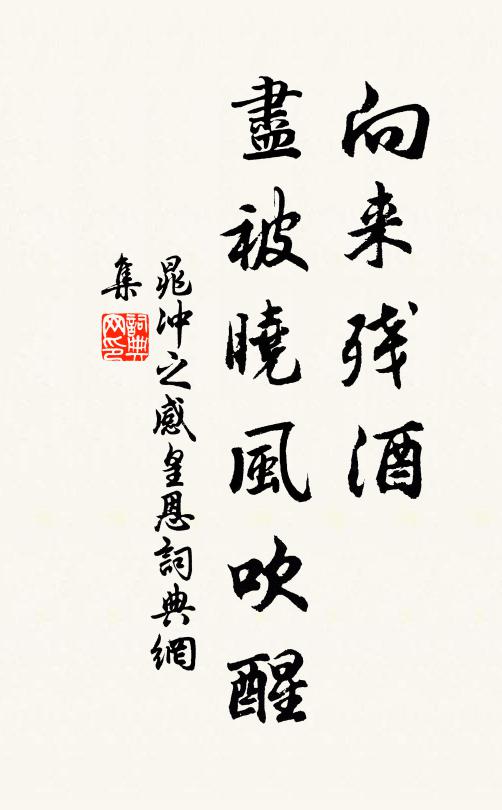 向来残酒
盡被曉風吹醒
晁冲之感皇恩詞典網
集
詞典网印